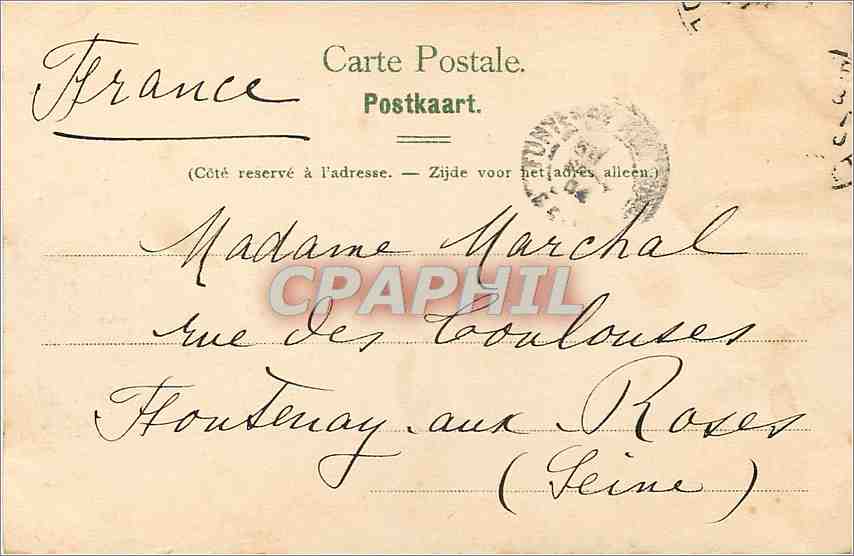 France
Carte Postale.
Postkaart.
(Côté reservé à l'adresse. — Zijde voor het adres alleen.)
Madame Marchal
CPAPHIL
rue des Coulouses
Fontenay-aux Roses
(Seine)